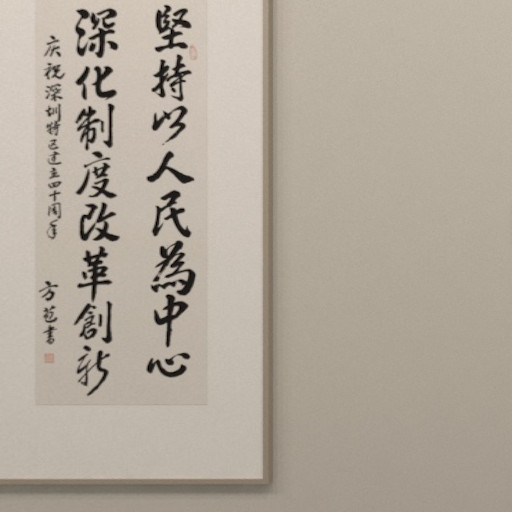 堅持以人民為中心
深化制度改革創新
庆祝深圳特区建立四十周年
方苞書